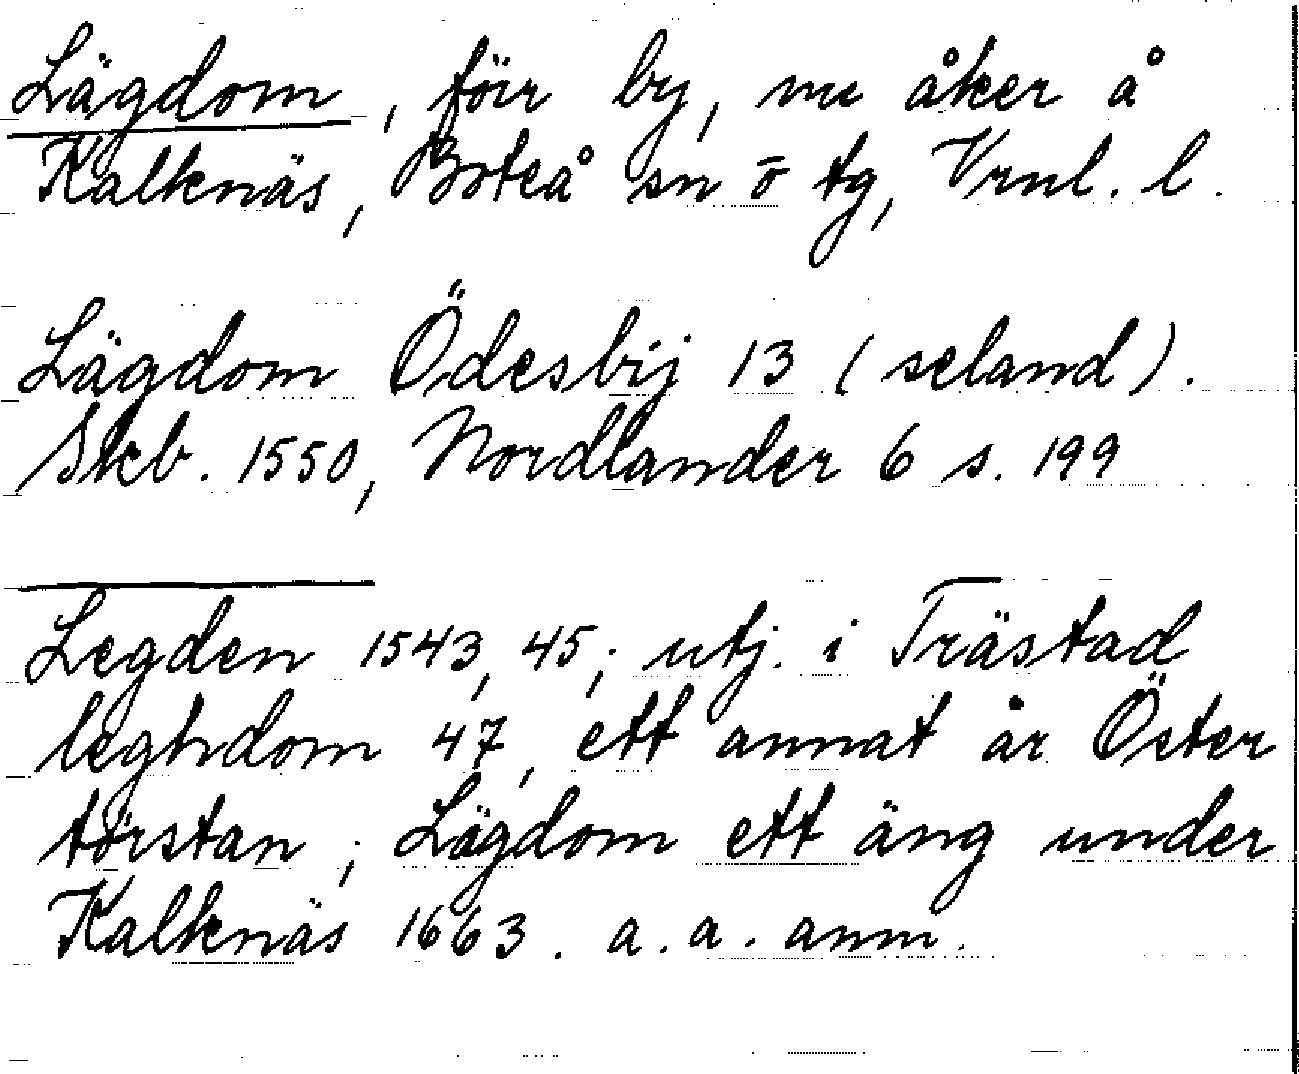 Lägdom, förr by, nu åker å
Kalknäs, Boteå sn o tg, Vrnl. l.
Lägdom Ödesbij 13 (seland).
Skb. 1550, Nordlander 6 s. 199
Legden 1543, 45; utj. i Trästad
leghdom 47, ett annat är Öster
törstan; Lägdom ett äng under
Kalknäs 1663. a. a. anm.